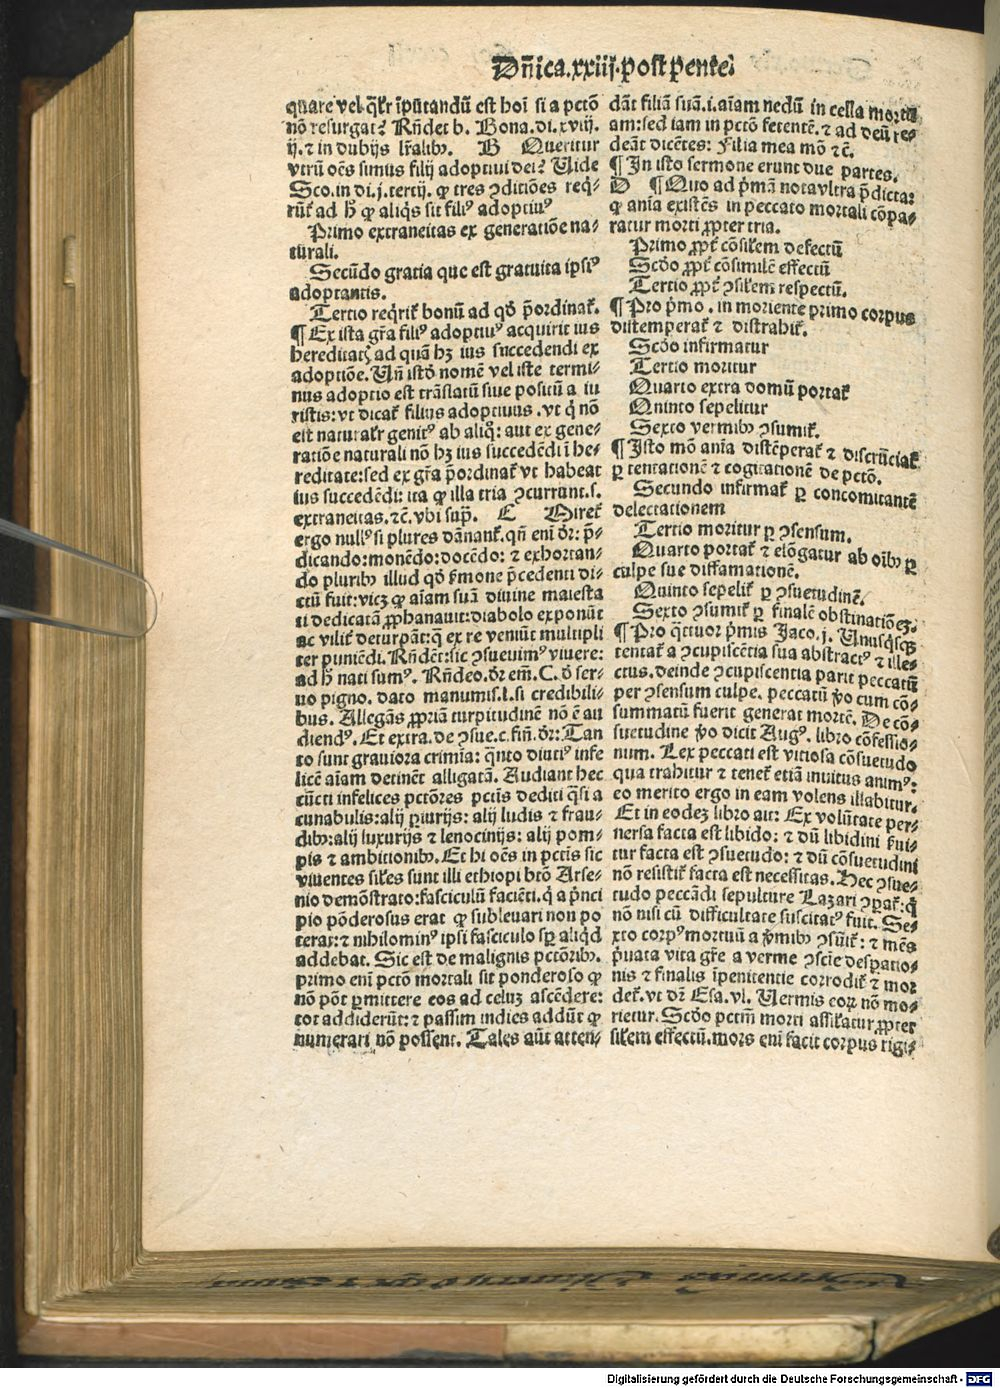 Dn̄ica.xxiij.post pente.
quare vel q̄lr īputandū est hoī si a pctō
nō resurgat? Rn̄det b. Bona.di.xviij.
ij.⁊ in dubijs lr̄alib⁹. B Queritur
vtrū oēs simus filij adoptiui dei? Uide
Sco.in di.j.tertij. ꝙ tres ꝯditiōes req̄-
rūt̄ ad h̄ ꝙ aliq̄s sit fili⁹ adoptiu⁹
Primo extraneitas ex generatiōe na-
turali.
Secūdo gratia que est gratuita ipsi⁹
adoptantis.
Tertio req̄rit̄ bonū ad qd̄ p̄ordinat̄.
¶ Ex ista gr̄a fili⁹ adoptiu⁹ acquirit ius
hereditatꝭ ad quā hꝫ ius succedendi ex
adoptiōe. Un̄ istd̄ nomē vel iste termi-
nus adoptio est trāslatū siue positū a iu
ristis: vt dicat̄ filius adoptiuus . vt q̇ nō
est naturalr̄ genit⁹ ab aliq̄: aut ex gene-
ratiōe naturali nō hꝫ ius succedēdi ī he-
reditate: sed ex gr̄a p̄ordinat̄ vt habeat
ius succedēdi: ita ꝙ illa tria ꝯcurrant.s.
extraneitas.⁊c̄. vbi sup̄. C Miret̄
ergo null⁹ si plures dānant̄. qn̄ eni dr̄: p̄-
dicando: monēdo: docēdo: ⁊ exhortan-
do plurib⁹ illud qd̄ s̄mone p̄cedenti di-
ctū fuit: vicꝫ ꝙ aīam suā diuine maiesta
ti dedicatā ꝓphanauit: diabolo exponūt
ac vilit̄ deturpāt: q̄ ex re veniūt multipli
ter puniēdi. Rn̄dēt: sic ꝯsueuim⁹ viuere:
ad h̄ nati sum⁹. Rn̄deo. dr̄ em̄. C. d̄ ser-
uo pigno. dato manumis.l.si credibili-
bus. Allegās ꝓpriā turpitudinē nō ē au
diend⁹. Et extra. de ꝯsue.c.fin̄. dr̄: Tan
to sunt grauiora crimīa: q̄nto diuti⁹ infe
licē aīam detinēt alligatā. Audiant hec
cūcti infelices pctōres pctīs dediti q̄si a
cunabulis: alij ꝑiurijs: alij ludis ⁊ frau-
dib⁹: alij luxurijs ⁊ lenocinijs: alij pom-
pis ⁊ ambitionib⁹. Et hi oēs in pctīs sic
viuentes siles sunt illi ethiopi btō Arse-
nio demōstrato: fasciculū faciēti. q̇ a p̄nci
pio pōderosus erat ꝙ subleuari non po
terat: ⁊ nihilomin⁹ ipsi fasciculo sꝑ aliq̇d
addebat. Sic est de malignis pctōrib⁹.
primo eni pctō mortali sit ponderoso ꝙ
nō pōt ꝑmittere eos ad celuꝫ ascēdere:
tot addiderūt: ⁊ passim indies addūt ꝙ
numerari nō possent. Tales aūt atten-
dāt filiā suā.i.aīam nedū in cella mortu
am: sed iam in pctō fetentē. ⁊ ad deū re-
deāt dicētes: Filia mea mō ⁊c̄.
¶ In isto sermone erunt due partes.
D ¶ Quo ad p̄mā nota vltra p̄dicta:
ꝙ anīa existēs in peccato mortali cōpa-
ratur morti ꝓpter tria.
Primo ꝓpt̄ cōsilem defectū
Scd̄o ꝓpt̄ cōsimilē effectū
Tertio ꝓpt̄ ꝯsilem respectū.
¶ Pro p̄mo . in moriente primo corpus
distemperat̄ ⁊ distrahit̄.
Scd̄o infirmatur
Tertio moritur
Quarto extra domū portat̄
Quinto sepelitur
Sexto vermib⁹ ꝯsumit̄.
¶ Isto mō anīa distēperat̄ ⁊ discrūciat̄
ꝑ tentationē ⁊ cogitationē de pctō.
Secundo infirmat̄ ꝑ concomitantē
delectationem
Tertio moritur ꝑ ꝯsensum.
Quarto portat̄ ⁊ elōgatur ab oīb⁹ ꝑ
culpe sue diffamationē.
Quinto sepelit̄ ꝑ ꝯsuetudinē.
Sexto ꝯsumit̄ ꝑ finalē obstinatiōeꝫ.
¶ Pro q̄ttuor p̄mis Jaco.j. Unusq̇sqꝫ
tentat̄ a ꝯcupiscētia sua abstract⁹ ⁊ ille-
ctus. deinde ꝯcupiscentia parit peccatū
per ꝯsensum culpe. peccatū v̊o cum cō-
summatū fuerit generat mortē. De cō-
suetudine v̊o dicit Aug⁹. libro cōfessio-
num. Lex peccati est vitiosa cōsuetudo
qua trahitur ⁊ tenet̄ etiā inuitus anim⁹:
eo merito ergo in eam volens illabitur.
Et in eodeꝫ libro ait: Ex volūtate per-
uersa facta est libido: ⁊ dū libidini s̄ui-
tur facta est ꝯsuetudo: ⁊ dū cōsuetudini
nō resistit̄ facta est necessitas. Hec ꝯsue-
tudo peccādi sepulture Lazari ꝯꝑat̄: q̇
nō nisi cū difficultate suscitat⁹ fuit. Se-
xto corp⁹ mortuū a v̄mib⁹ ꝯsūit̄: ⁊ mēs
p̄uata vita gr̄e a verme ꝯscīe desꝑatio-
nis ⁊ finalis īpenitentie corrodit̄ ⁊ mor
det̄. vt dr̄ Esa. vl. Uermis eorꝝ nō mo-
rietur. Scd̄o pctm̄ morti assilatur ꝓpter
silem effectū. mors eni facit corpus rigi-
Digitalisierung gefördert durch die Deutsche Forschungsgemeinschaft - DFG